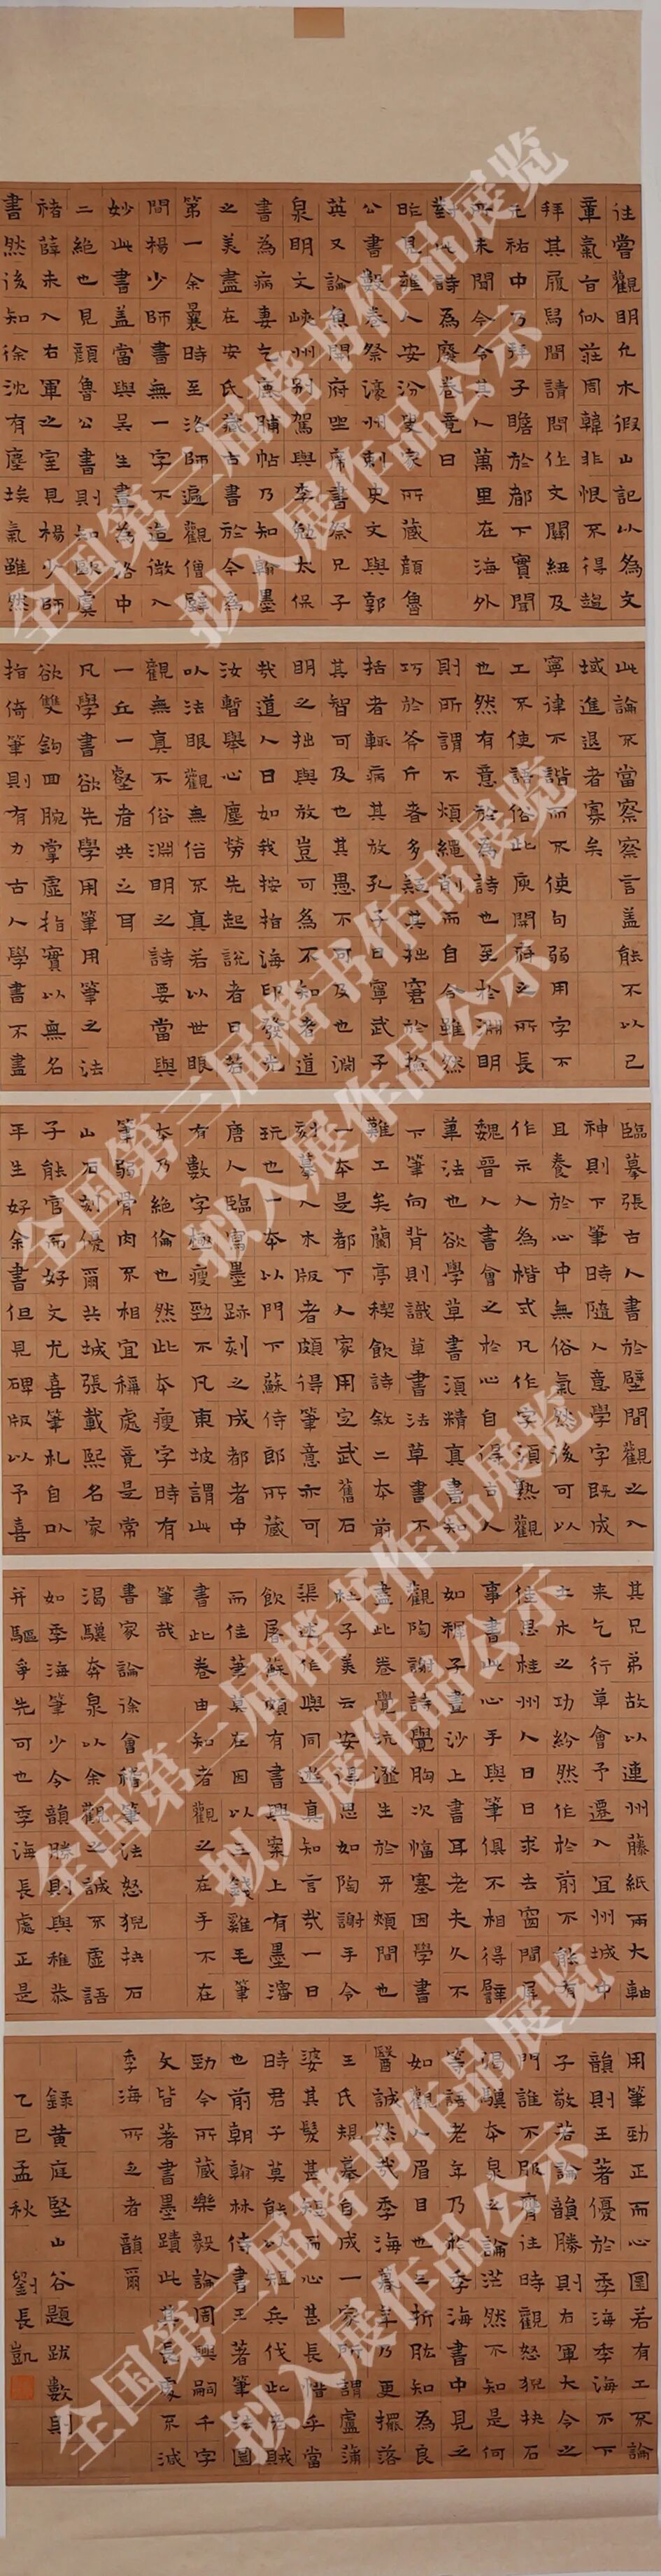 往嘗觀明允木假山記以為文
章氣旨似莊周韓非恨不得趨
拜其履舄間請問作文關紐及
元祐中乃拜子瞻於都下實聞
所未聞今令其人萬里在海外
對此詩為廢卷竟日
昨見雄人安汾叟家所藏顏魯
公書數卷祭濠州刺史文與郭
英乂論魚開府坐席書祭兄子
泉明文峽州別駕與李勉太保
書為病妻乞鹿脯帖乃知翰墨
之美盡在安氏藏古書於今為
第一余曩時至洛師遍觀僧壁
間楊少師書無一字不造微入
妙此書蓋當與吳生畫為洛中
二絕也見顏魯公書則知歐虞
褚薛未入右軍之室見楊少師
書然後知徐沈有塵埃氣雖然
此論不當察察言蓋能不以己
域進退者寡矣
寧律不諧而不使句弱用字不
工不使語俗此庾開府之所長
也然有意於為詩也至於淵明
則所謂不煩繩削而自合雖然
巧於斧斤者多疑其拙窘於檢
括者輒病其放孔子曰寧武子
其智可及也其愚不可及也淵
明之拙與放豈可為不知者道
哉道人曰如我按指海印發光
汝暫舉心塵勞先起說者曰若
以法眼觀無俗不真若以世眼
觀無真不俗淵明之詩要當與
一丘一壑者共之耳
凡學書欲先學用筆用筆之法
欲雙鉤回腕掌虛指實以無名
指倚筆則有力古人學書不盡
臨摹張古人書於壁間觀之入
神則下筆時隨人意學字既成
且養於心中無俗氣然後可以
作示人為楷式凡作字須熟觀
魏晉人書會之於心自得古人
筆法也欲學草書須精真書知
下筆向背則識草書法草書不
難工矣蘭亭禊飲詩敘二本前
一本是都下人家用定武舊石
刻摹入木版者頗得筆意亦可
玩也一本以門下蘇侍郎所藏
唐人臨寫墨跡刻之成都者中
有數字極瘦勁不凡東坡謂此
本乃絕倫也然此本瘦字時有
筆弱骨肉不相宜稱處竟是常
山石刻優爾共城張載熙名家
子能官而好文尤喜筆札自以
平生好余書但見碑版以予喜
其兄弟故以連州藤紙兩大軸
來乞行草會予遷入宜州城中
土木之功紛然作於前不能有
佳思桂州人日日求去窗間屏
事書此心手與筆俱不相得譬
如禪子畫沙上書耳老夫久不
觀陶謝詩覺胸次愊塞因學書
盡此卷覺沆瀣生於牙頰間也
杜子美云安得思如陶謝手令
渠述作與同遊真知言哉一日
飲屠蘇頗有書興案上有墨瀋
而佳筆莫在因以三錢雞毛筆
書此卷由知者觀之在手不在
筆哉
書家論徐會稽筆法怒猊抉石
渴驥奔泉以余觀之誠不虛語
如季海筆少令韻勝則與稚恭
并驅爭先可也季海長處正是
用筆勁正而心圓若有工不論
韻則王著優於季海季海不下
子敬若論韻勝則右軍大令之
門誰不服膺往時觀怒猊抉石
渴驥奔泉之論茫然不知是何
等語老年乃於季海書中見之
如觀人眉目也三折肱知為良
醫誠然哉季海暮年乃更擺落
王氏規摹自成一家所謂盧蒲
嫳其髮甚短而心甚長惜乎當
時君子莫能以短兵伐此老賊
也前朝翰林侍書王著筆法圓
勁今所藏樂毅論周興嗣千字
文皆著書墨蹟此其長處不減
季海所乏者韻爾
錄黃庭堅山谷題跋數則
乙巳孟秋 劉長凱
全国第三届楷书作品展览
拟入展作品公示
全国第三届楷书作品展览
拟入展作品公示
全国第三届楷书作品展览
拟入展作品公示
全国第三届楷书作品展览
拟入展作品公示